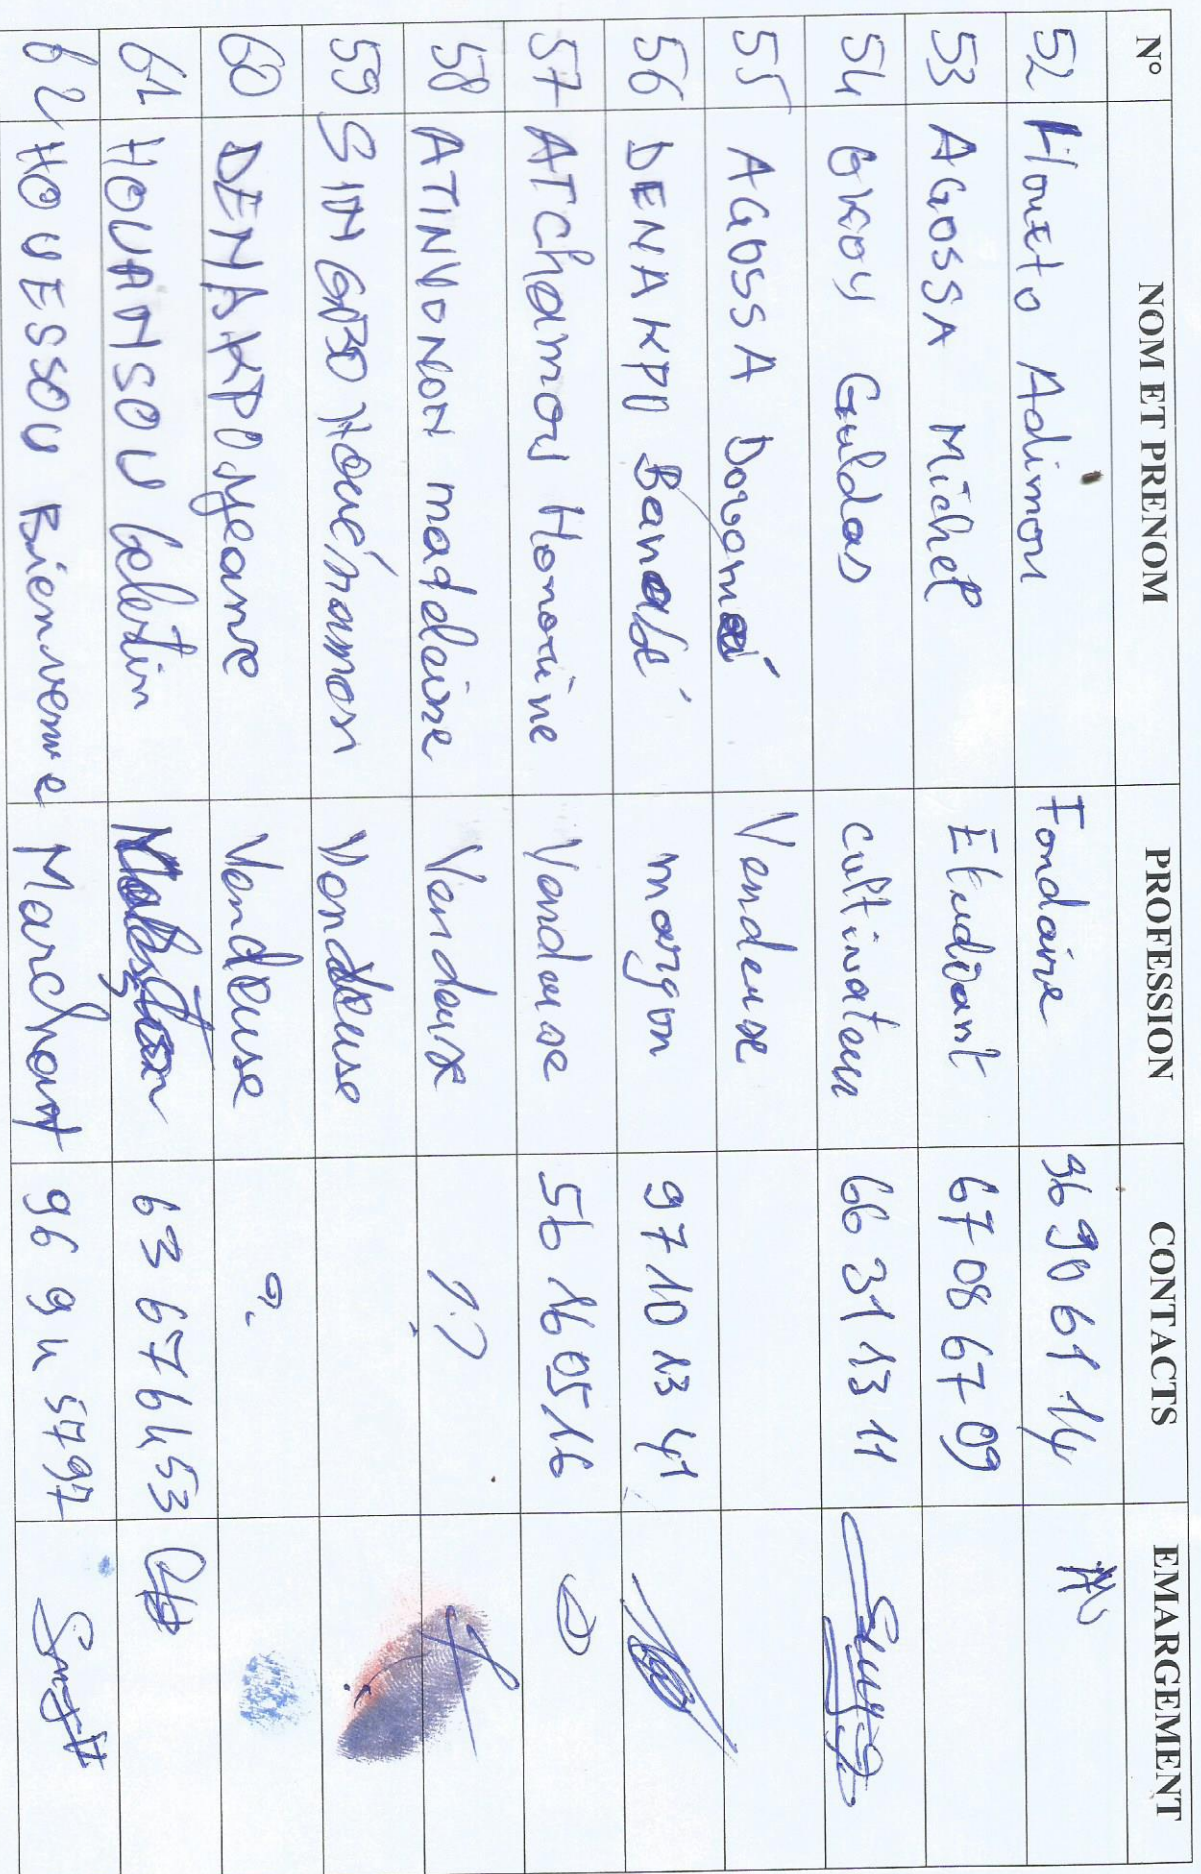 N° NOM ET PRENOM PROFESSION CONTACTS EMARGEMENT
52 Houeto Adimou Fondaire 96 90 61 14
53 AGOSSA Michel Etudiant 67 08 67 09
54 GKOY Guldas cultivateur 66 31 13 11
55 AGOSSA Vendeuse
56 DENAKPO maçon 97 10 13 41
57 ATChamou Honorine Vendeuse 56 16 05 16
58 ATINVONON madeleine Vendeuse
59 SINGBO Houénamon Vendeuse
60 DENAKPO Vendeuse ?
61 HOUANSOU Celestin 63 67 64 53
62 HOUESSOU Bienvenue Marchant 96 94 57 97